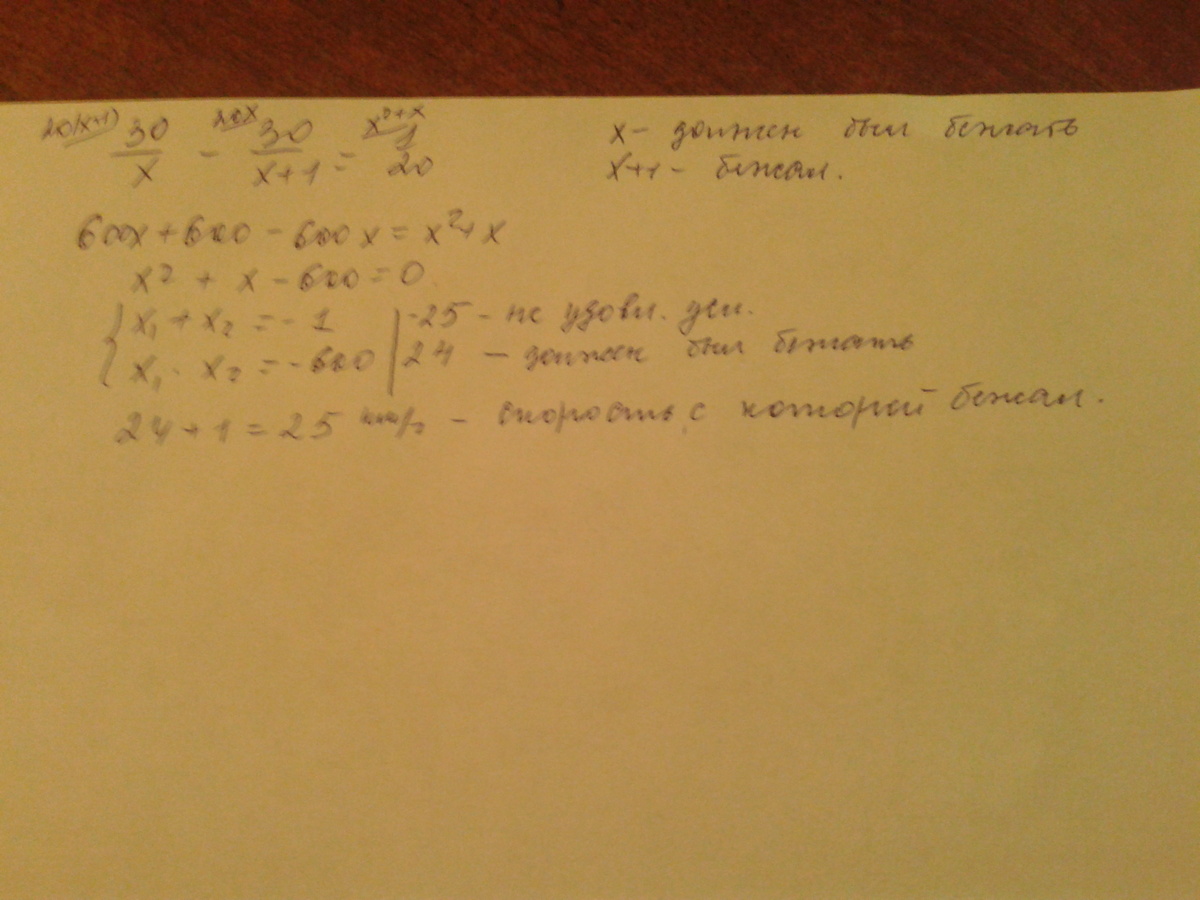 20(x+1) 30/x - 20x 30/(x+1) = x²+x 1/20
x - должен был бежать
x+1 - бежал.
600x+600-600x = x²+x
x² + x - 600 = 0
{ x₁ + x₂ = -1 | -25 - не удовл. усл.
x₁ · x₂ = -600 | 24 - должен был бежать
24 + 1 = 25 км/ч - скорость, с которой бежал.